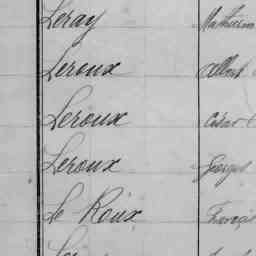 Leray Mathurin
Leroux Albert
Leroux César
Leroux Georges
Le Roux François